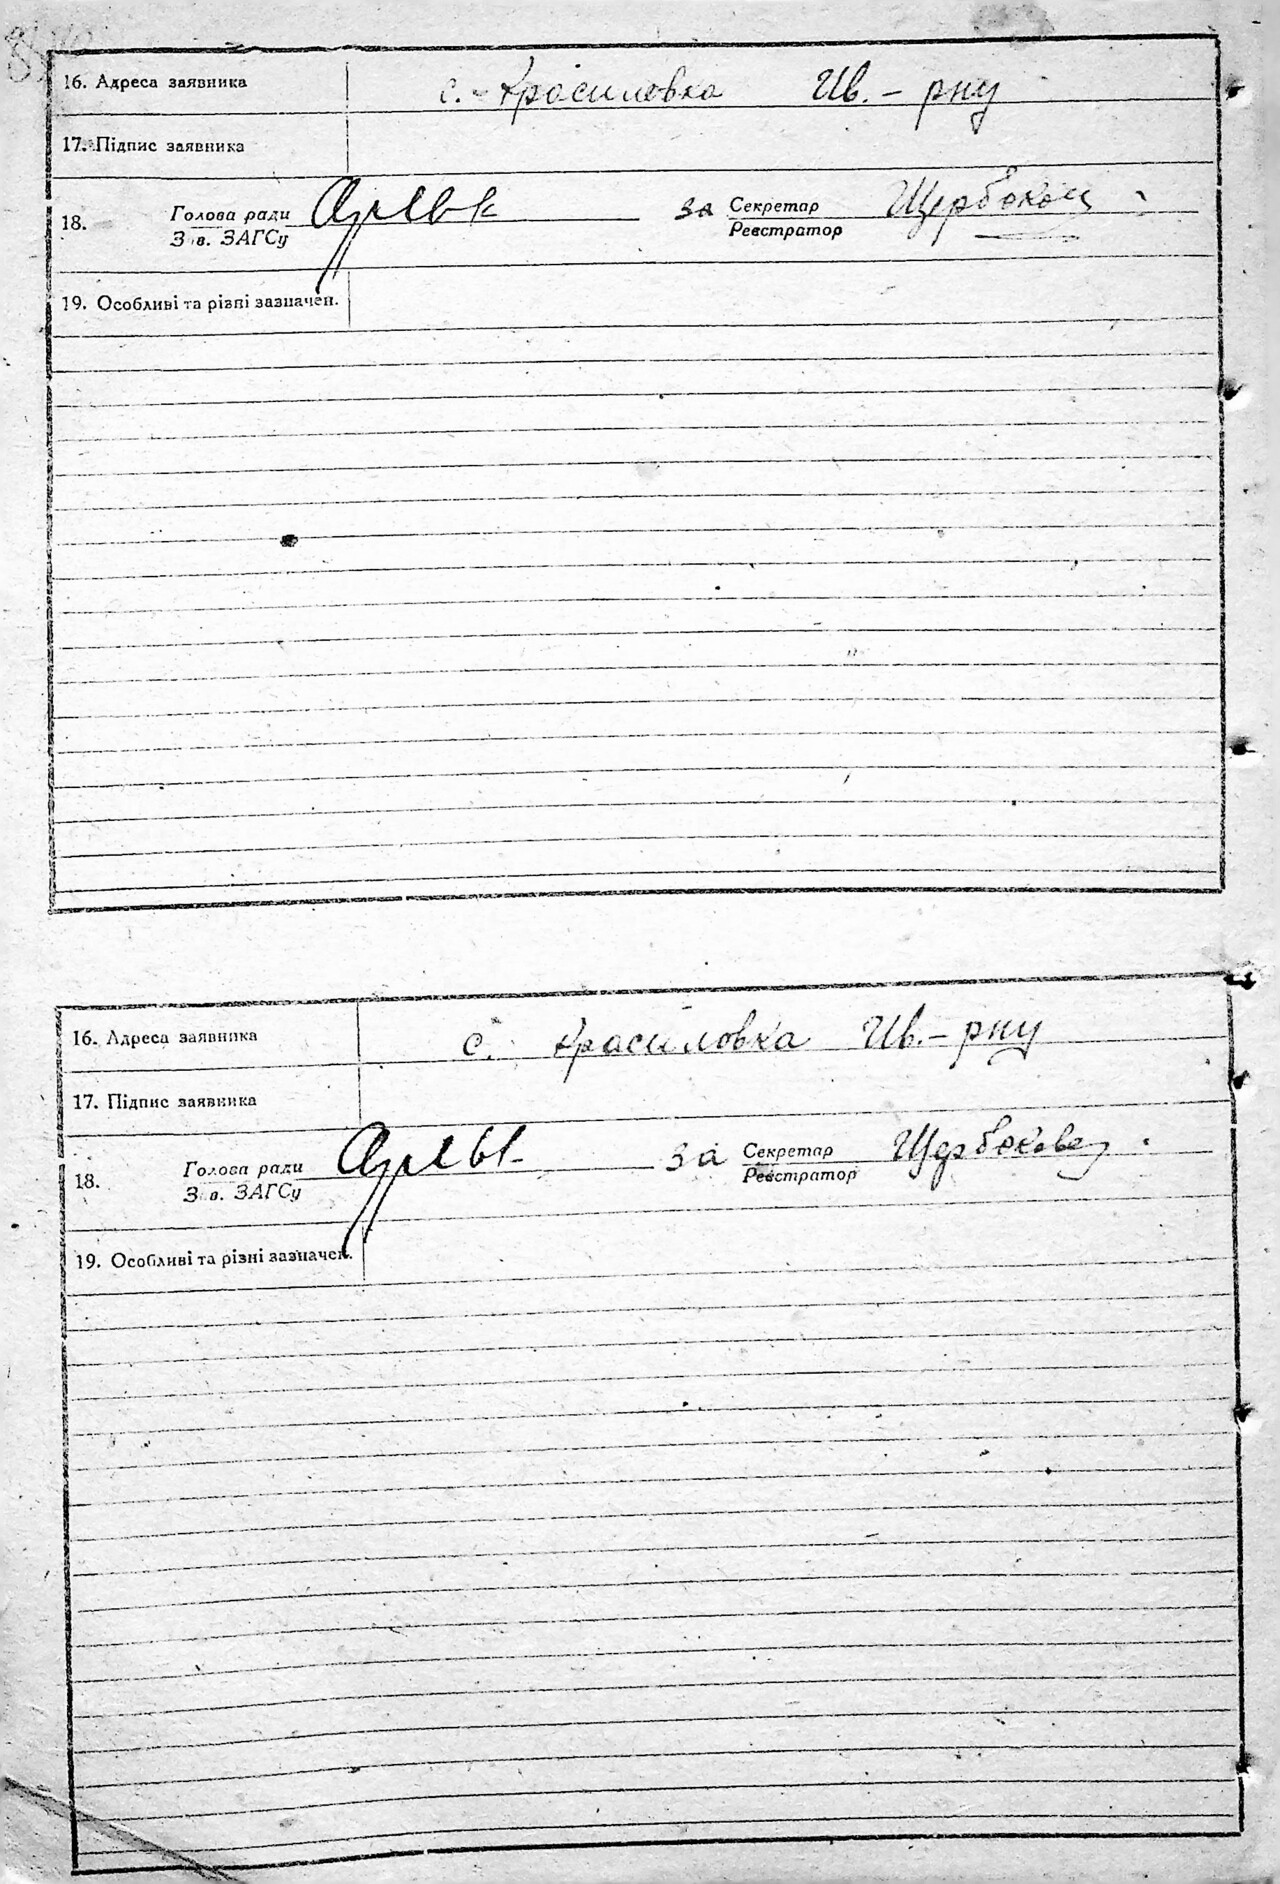 16. Адреса заявника с. Красиловка Ив.-рну
17. Підпис заявника
18. Голова ради за Секретар
Зав. ЗАГСу Реєстратор
19. Особливі та різні зазначен.
16. Адреса заявника с. Красиловка Ив.-рну
17. Підпис заявника
18. Голова ради за Секретар
Зав. ЗАГСу Реєстратор
19. Особливі та різні зазначен.